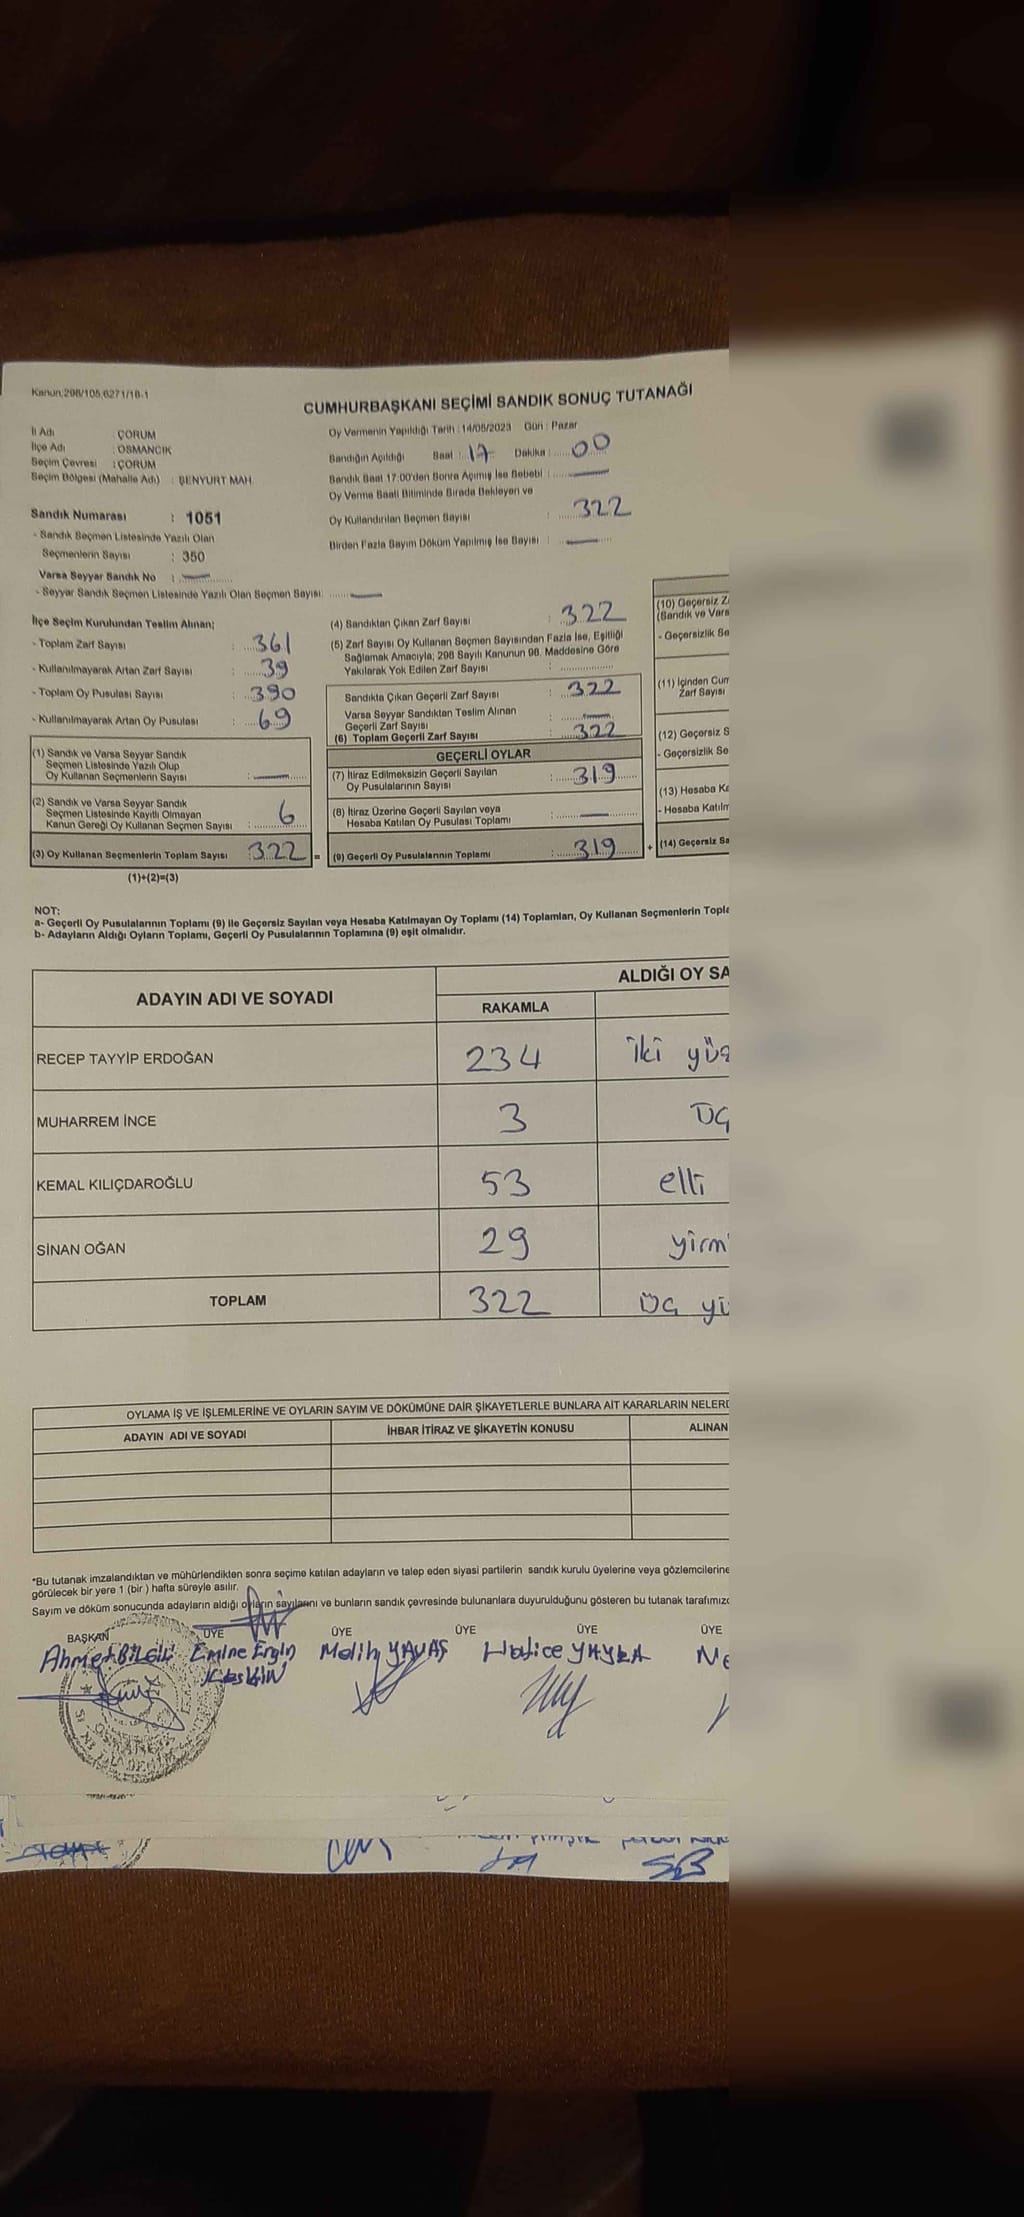 Kanun:298/105,6271/18-1
CUMHURBAŞKANI SEÇİMİ SANDIK SONUÇ TUTANAĞI
İl Adı : ÇORUM
İlçe Adı : OSMANCIK
Seçim Çevresi : ÇORUM
Seçim Bölgesi (Mahalle Adı) : ŞENYURT MAH.
Sandık Numarası : 1051
- Sandık Seçmen Listesinde Yazılı Olan
Seçmenlerin Sayısı : 350
Varsa Seyyar Sandık No :
- Seyyar Sandık Seçmen Listesinde Yazılı Olan Seçmen Sayısı:
Oy Vermenin Yapıldığı Tarih : 14/05/2023 Gün : Pazar
Sandığın Açıldığı Saat : 17 Dakika : 00
Sandık Saat 17:00'den Sonra Açımış İse Sebebi :
Oy Verme Saati Bitiminde Sırada Bekleyen ve
Oy Kullandırılan Seçmen Sayısı : 322
Birden Fazla Sayım Döküm Yapılmış İse Sayısı :
İlçe Seçim Kurulundan Teslim Alınan;
- Toplam Zarf Sayısı : 361
- Kullanılmayarak Artan Zarf Sayısı : 39
- Toplam Oy Pusulası Sayısı : 390
- Kullanılmayarak Artan Oy Pusulası : 69
(1) Sandık ve Varsa Seyyar Sandık
Seçmen Listesinde Yazılı Olup
Oy Kullanan Seçmenlerin Sayısı :
(2) Sandık ve Varsa Seyyar Sandık
Seçmen Listesinde Kayıtlı Olmayan
Kanun Gereği Oy Kullanan Seçmen Sayısı : 6
(3) Oy Kullanan Seçmenlerin Toplam Sayısı : 322 =
(1)+(2)=(3)
(4) Sandıktan Çıkan Zarf Sayısı : 322
(5) Zarf Sayısı Oy Kullanan Seçmen Sayısından Fazla İse, Eşitliği
Sağlamak Amacıyla; 298 Sayılı Kanunun 98. Maddesine Göre
Yakılarak Yok Edilen Zarf Sayısı :
Sandıkta Çıkan Geçerli Zarf Sayısı : 322
Varsa Seyyar Sandıktan Teslim Alınan
Geçerli Zarf Sayısı :
(6) Toplam Geçerli Zarf Sayısı : 322
GEÇERLİ OYLAR
(7) İtiraz Edilmeksizin Geçerli Sayılan
Oy Pusulalarının Sayısı : 319
(8) İtiraz Üzerine Geçerli Sayılan veya
Hesaba Katılan Oy Pusulası Toplamı :
(9) Geçerli Oy Pusulalarının Toplamı : 319 +
(10) Geçersiz Z
(Sandık ve Vars
- Geçersizlik Se
(11) İçinden Cum
Zarf Sayısı
(12) Geçersiz S
- Geçersizlik Se
(13) Hesaba Ka
- Hesaba Katılm
(14) Geçersiz Sa
NOT:
a- Geçerli Oy Pusulalarının Toplamı (9) ile Geçersiz Sayılan veya Hesaba Katılmayan Oy Toplamı (14) Toplamları, Oy Kullanan Seçmenlerin Topla
b- Adayların Aldığı Oyların Toplamı, Geçerli Oy Pusulalarının Toplamına (9) eşit olmalıdır.
ADAYIN ADI VE SOYADI
ALDIĞI OY SA
RAKAMLA
RECEP TAYYİP ERDOĞAN 234 iki yüz
MUHARREM İNCE 3 üç
KEMAL KILIÇDAROĞLU 53 elli
SİNAN OĞAN 29 yirm
TOPLAM 322 üç yü
OYLAMA İŞ VE İŞLEMLERİNE VE OYLARIN SAYIM VE DÖKÜMÜNE DAİR ŞİKAYETLERLE BUNLARA AİT KARARLARIN NELERD
ADAYIN ADI VE SOYADI İHBAR İTİRAZ VE ŞİKAYETİN KONUSU ALINAN
*Bu tutanak imzalandıktan ve mühürlendikten sonra seçime katılan adayların ve talep eden siyasi partilerin sandık kurulu üyelerine veya gözlemcilerine
görülecek bir yere 1 (bir ) hafta süreyle asılır.
Sayım ve döküm sonucunda adayların aldığı oyların sayılarını ve bunların sandık çevresinde bulunanlara duyurulduğunu gösteren bu tutanak tarafımızd
BAŞKAN ÜYE ÜYE ÜYE ÜYE ÜYE
Ahmet BİLGİLİ Emine Ergin Melih YAVAŞ Hatice YAYLA Ne
Keskin